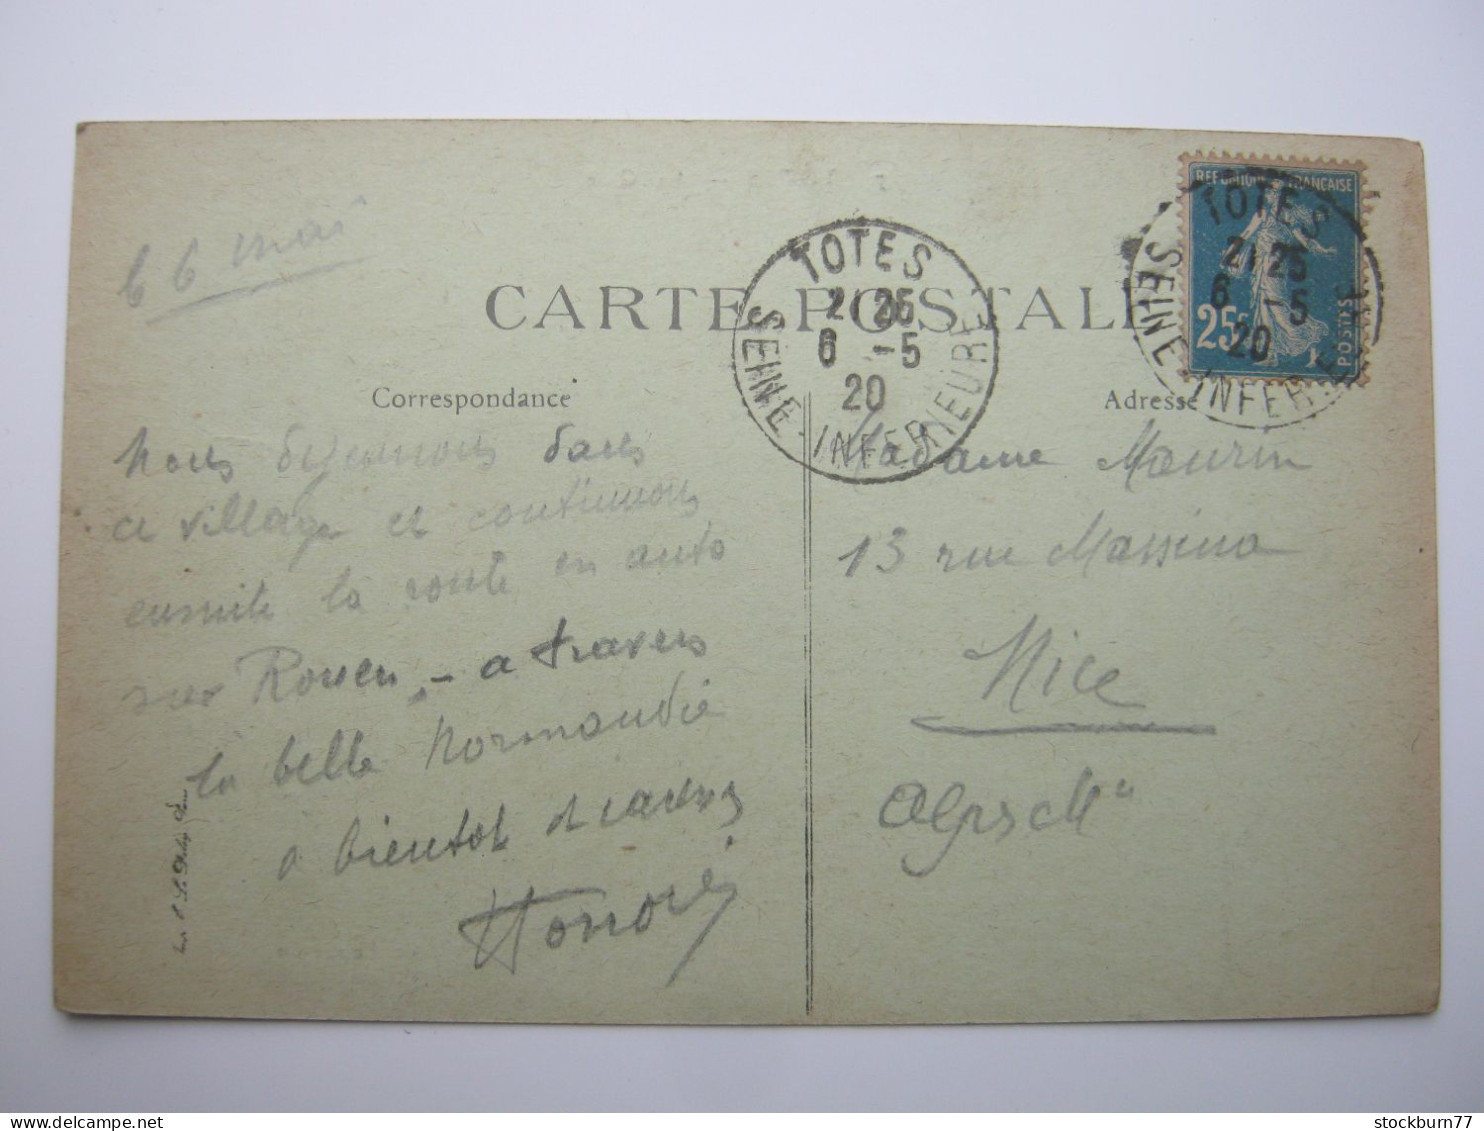 6 mai
CARTE POSTALE
Correspondance
Adresse
TOTES
21 25
6 -5
20
SEINE-INFERIEURE
REPUBLIQUE FRANÇAISE
25c
POSTES
TOTES
21 25
6 -5
20
SEINE-INFERIEURE
Nous déjeunons dans
ce village et continuons
ensuite la route en auto
sur Rouen, - a travers
la belle Normandie
a bientot
Honoré
Madame Maurin
13 rue Massena
Nice
Alpes Mmes
stockburn77